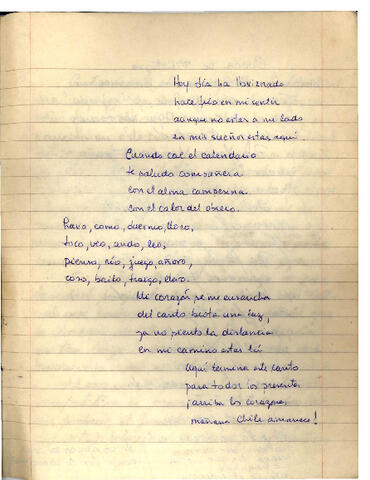 Hoy día ha lloviznado
hace frío en mi sentir
aunque no estas a mi lado
en mis sueños estas aquí.
Cuando cae el calendario
te saludo compañera
con el alma campesina
con el calor del obrero.
Hablo, como, duermo, lloro,
toco, veo, ando, leo,
pienso, río, juego, añoro,
coso, bailo, traigo, llevo.
Mi corazón se me ensancha
del canto brota una luz,
ya no siento la distancia
en mi camino estas tú.
Aquí termina este canto
para todos los presentes
¡arriba los corazones,
mañana Chile amanece!